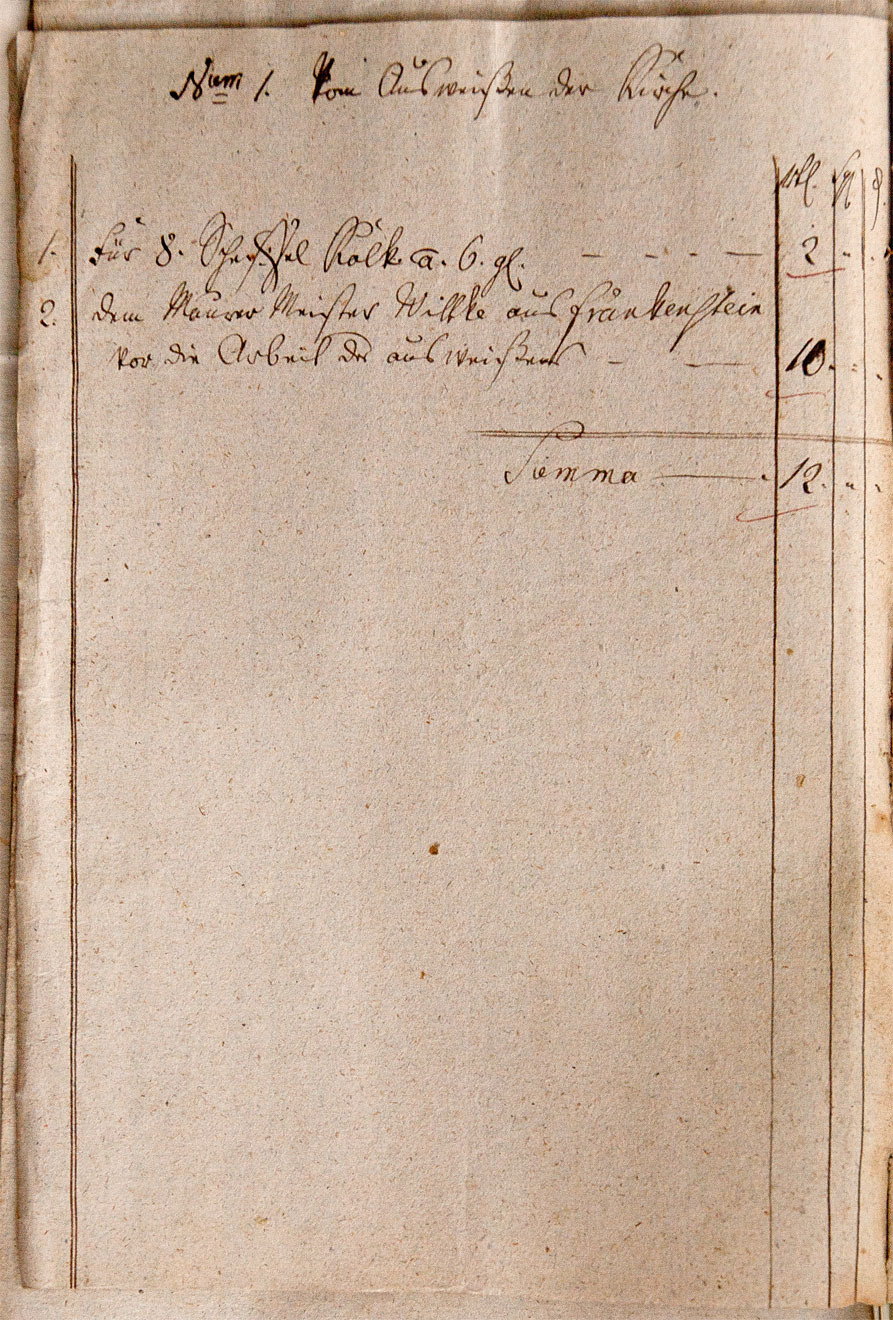 Num 1. Vom Ausweißen der Kirche.
rtl. sgl d.
1. Für 8. Scheffel Kalk a. 6. gl. — — — — 2 " "
2. dem Maurer Meister Wilke aus Frankenstein
vor die Arbeit des ausweißens — — 10. " "
Summa — 12. " "